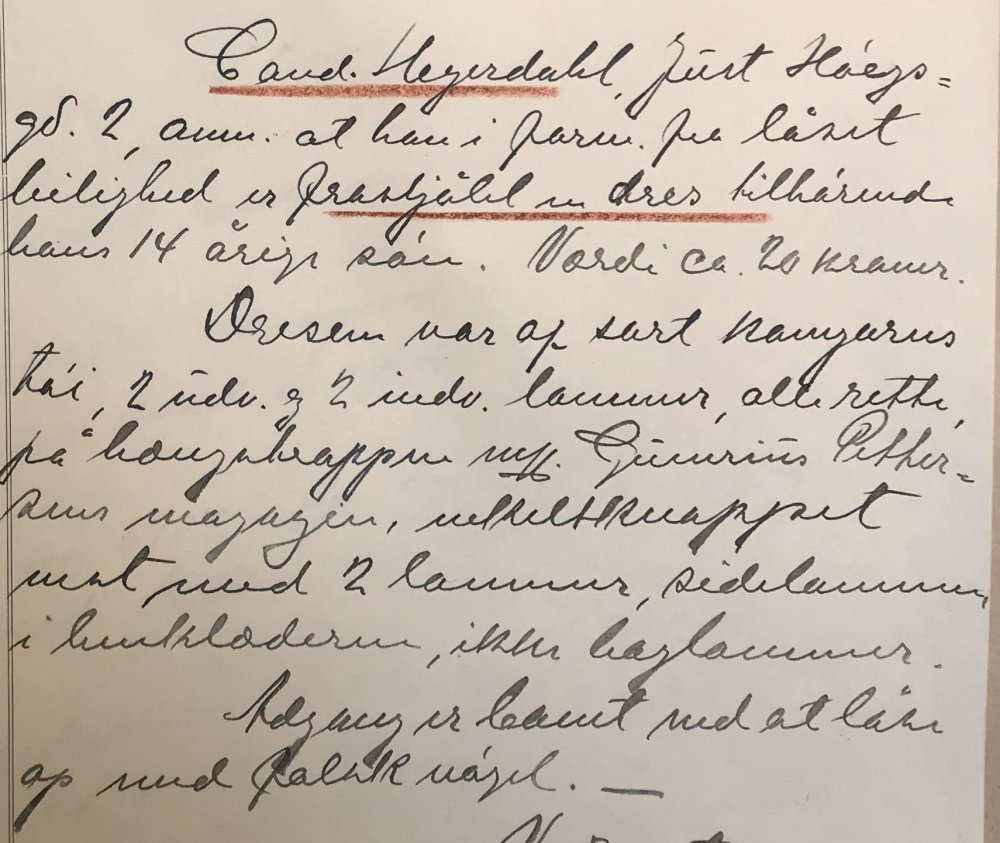 Cand. Heyerdahl, Just Høegs=
gd. 2, anm. at han i form. fra låset
leilighed er frastjålet en dres tilhørende
hans 14 årige søn. Værdi ca. 20 kroner.
Dressen var af sort kamgarns
tøi, 2 udv. og 2 indv. lommer, alle rette,
på hængestroppen mrk. Gunerius Petter=
sens magazin, enkeltknappet
vest med 2 lommer, sidelommer
i benklæderne, ikke baglommer.
Adgang er banet ved at låse
op med falsk nøgel. —